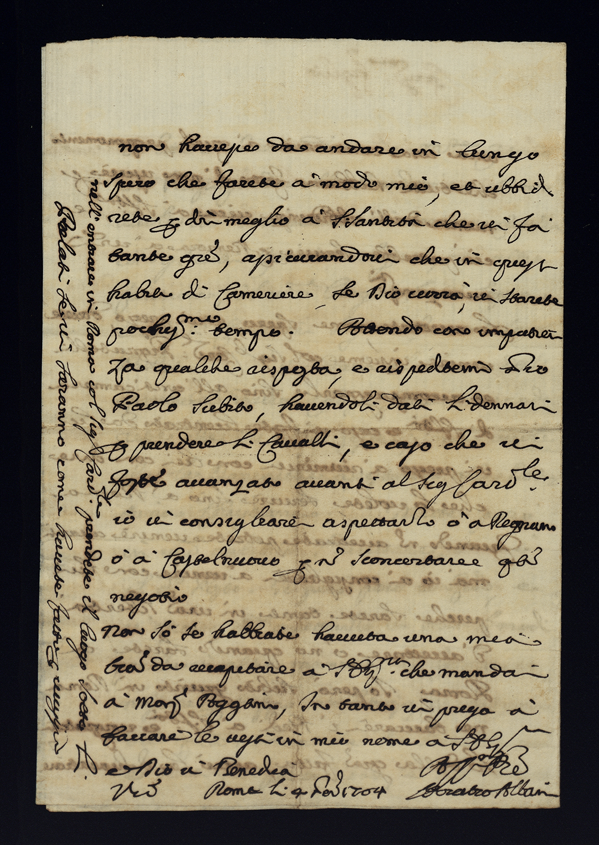 non havese da andare in lungo
spero che farete à modo mio, et ubbidi
rete p dir meglio à S. Santità che vi fà
tante grẽ, assicurandovi che in quest
habito di Cameriere, se Dio vorrà, vi starete
pochissmo tempo. Attendo con impatien
za qualche risposta, e rispeditemi
Paolo subito, havendoli dati li dennari
p prendere li Cavalli, e caso che vi
foste avanzato avanti al Sig Cardle.
io vi consigliarei aspettarlo ò a Regnano
ò à Castelnuovo p nõ sconcertare qto
negotio
Non sò se habbiate havuta una mia
da recapitare à che mandai
à Monsr Poggini, In tanto vi prego à
baciare le vesti in mio nome à
e Dio vi Benedica
Roma li 4 1704
Oratio Albani
nell'entrare in Roma col Sig Cardle prendete il luogo sotto li
Prelati se vi saranno come havete fatto